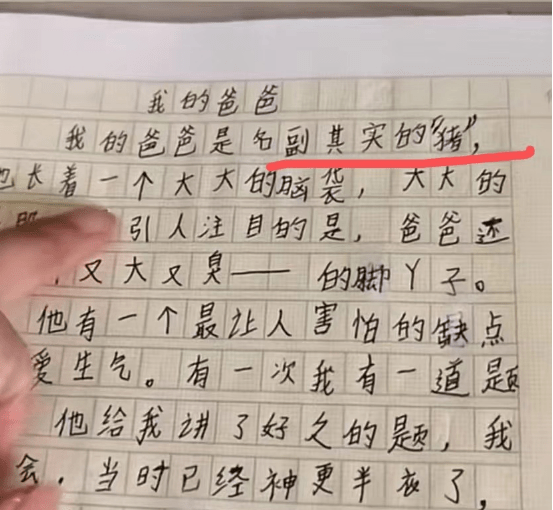 我的爸爸
我的爸爸是名副其实的“猪”,
他长着一个大大的脑袋,大大的
引人注目的是,爸爸还
又大又臭——的脚丫子。
他有一个最让人害怕的缺点
爱生气。有一次我有一道题
他给我讲了好久的题,我
会,当时已经神更半衣了,